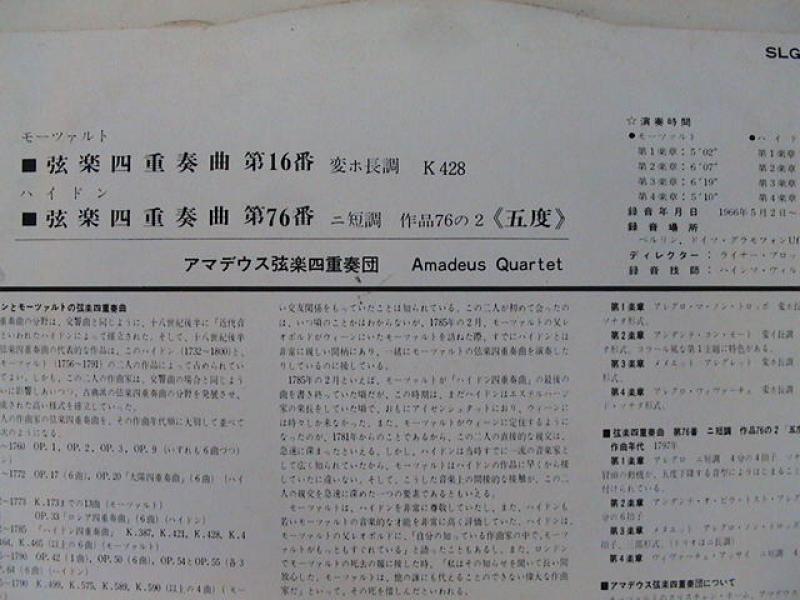 SLG
モーツァルト
■弦楽四重奏曲 第16番 変ホ長調 K 428
ハイドン
■弦楽四重奏曲 第76番 ニ短調 作品76の2《五度》
アマデウス弦楽四重奏団 Amadeus Quartet
☆演奏時間
●モーツァルト
第1楽章：5′02″
第2楽章：6′07″
第3楽章：6′19″
第4楽章：5′10″
●ハイド
第1楽章
第2楽章
第3楽章
第4楽章
録音年月日 1966年5月2日〜
録音場所
ベルリン，ドイツ・グラモフォンUf
ディレクター：ライナー・ブロッ
録音技師：ハインツ・ヴィル
ンとモーツァルトの弦楽四重奏曲
重奏曲の分野は、交響曲と同じように、十八世紀後半に「近代音
といわれたハイドンによって確立された。そして、十八世紀後
弦楽四重奏曲の代表的な作品は、このハイドン（1732〜1800）と、
モーツァルト（1756〜1791）の二人の作品によって占められてい
てよい。しかも、この二人の作曲家は、交響曲の場合と同じよう
いに影響しあいつつ、古典派の弦楽四重奏曲の分野を発展させ、
成された高い様式を確立していった。
人の作曲家の弦楽四重奏曲を、その作曲年代順に大別して並べて
次のようになる。
〜1760 OP.1, OP.2, OP.3, OP.9（いずれも6曲づつ）
〜1772 OP.17（6曲），OP.20「太陽四重奏曲」（6曲）（ハイ
〜1773 K.173までの13曲（モーツァルト）
OP.33「ロシア四重奏曲」（6曲）（ハイドン）
〜1785 「ハイドン四重奏曲」 K.387, K.421, K.428, K.4
464, K.465（以上の6曲）（モーツァルト）
〜1790 OP.42（1曲），OP.50（6曲），OP.54とOP.55（各3
OP.64（6曲）（ハイドン）
〜1790 K.499, K.575, K.589, K.590（以上の4曲）（モー
い交友関係をもっていたことは知られている。この二人が初めて会ったの
は、いつ頃のことかはわからないが、1785年の2月、モーツァルトの父レ
オポルドがウィーンにいたモーツァルトを訪ねた際、すでにハイドンとは
非常に親しい間柄にあり、一緒にモーツァルトの弦楽四重奏曲を演奏した
りしているのに接している。
1785年の2月といえば、モーツァルトが「ハイドン四重奏曲」の最後の
曲を書き終っていた頃だが、この時期は、まだハイドンはエステルハーツ
家の楽長をしていた頃で、おもにアイゼンシュタットにおり、ウィーンに
は時々しか来なかった。また、モーツァルトがウィーンに定住するように
なったのが、1781年からのことであるから、この二人の直接的な親交は、
急速に深まったといえる。しかし、ハイドンは当時すでに一流の音楽家と
して広く知られていたから、モーツァルトはハイドンの作品に早くから接
していたに違いない。そして、こうした音楽上の間接的な接触が、この二
人の親交を急速に深めた一つの要素であるともいえる。
モーツァルトは、ハイドンを非常に尊敬していたし、また、ハイドンも
若いモーツァルトの音楽的な才能を非常に高く評価していた。ハイドンは、
モーツァルトの父レオポルドに、「自分の知っている作曲家の中で、モーツ
ァルトがもっともすぐれている」と語ったこともあるし、また、ロンドン
でモーツァルトの死去の報に接した時、「私はその知らせを聞いて長い間
放心した。モーツァルトは、他の誰にも代えることのできない偉大な作曲
家だ」といって、その死を惜しんだといわれる。
第1楽章 アレグロ・マ・ノン・トロッポ 変ホ長
ソナタ形式。
第2楽章 アンダンテ・コン・モート 変イ長調
タ形式。コラール風な第1主題に特色がある。
第3楽章 メヌエット アレグレット 変ホ長調
形式。
第4楽章 アレグロ・ヴィヴァーチェ 変ホ長調
ド・ソナタ形式。
■弦楽四重奏曲 第76番 ニ短調 作品76の2「五度
作曲年代 1797年
第1楽章 アレグロ ニ短調 4分の4拍子 ソナ
冒頭の動機が、五度下降する音型によりはこまること
付けられている。
第2楽章 アンダンテ・オ・ピウ・トスト・アレグ
分の6拍子
第3楽章 メヌエット アレグロ・ノン・トロッポ
拍子、三部形式。（トリオはニ長調）
第4楽章 ヴィヴァーチェ・アッサイ ニ短調 4
形式。
■アマデウス弦楽四重奏団について